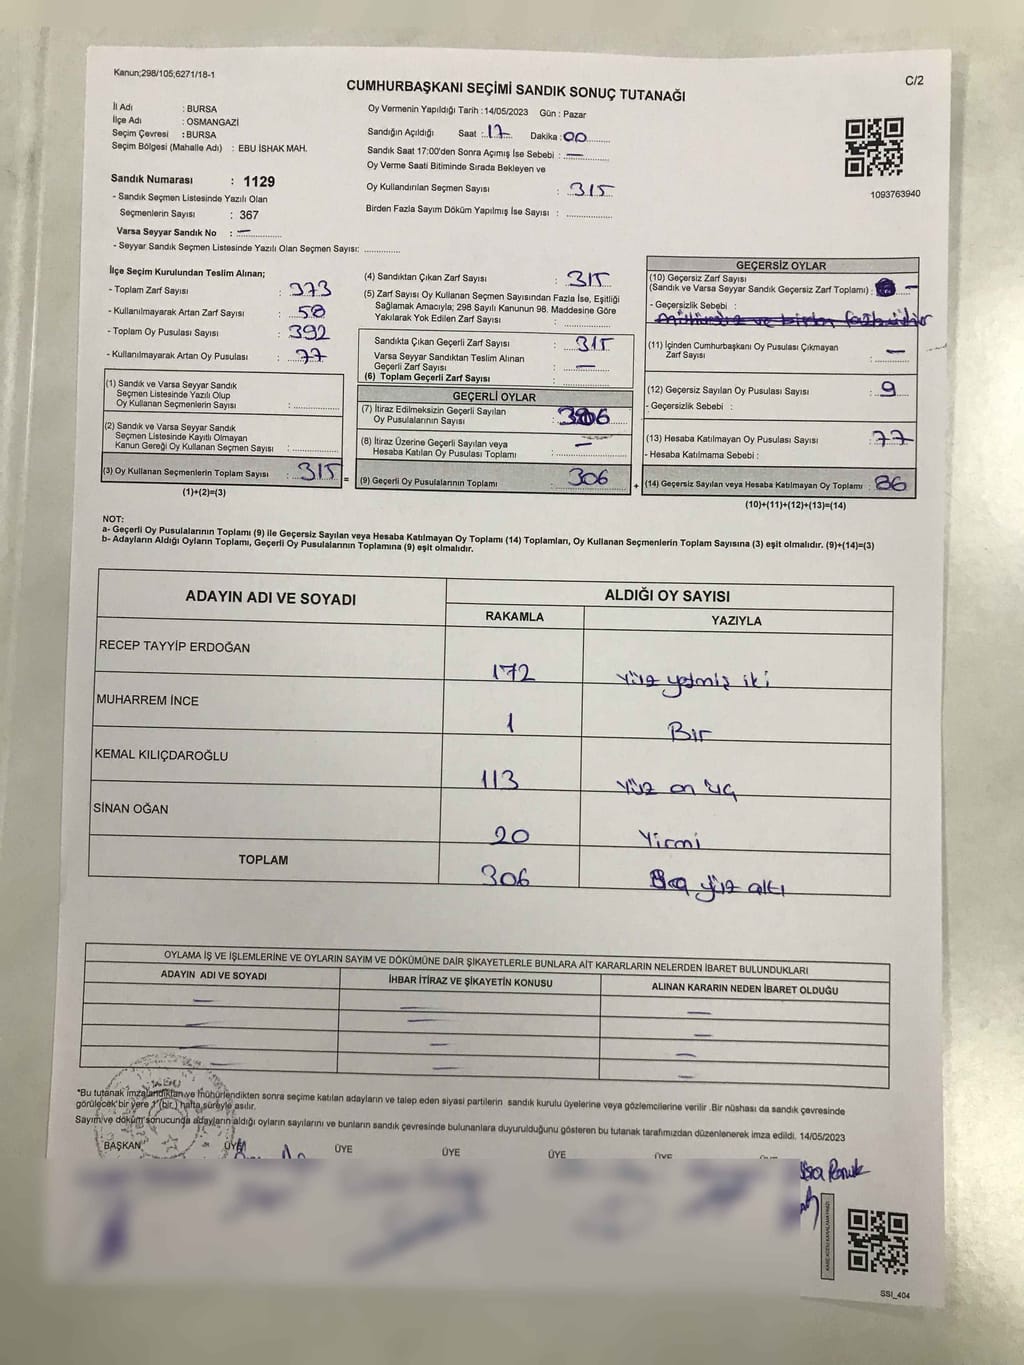 Kanun;298/105;6271/18-1
C/2
CUMHURBAŞKANI SEÇİMİ SANDIK SONUÇ TUTANAĞI
İl Adı : BURSA
İlçe Adı : OSMANGAZİ
Seçim Çevresi : BURSA
Seçim Bölgesi (Mahalle Adı) : EBU İSHAK MAH.
Oy Vermenin Yapıldığı Tarih : 14/05/2023 Gün : Pazar
Sandığın Açıldığı Saat : 17 Dakika : 00
Sandık Saat 17:00'den Sonra Açımış İse Sebebi : —
Oy Verme Saati Bitiminde Sırada Bekleyen ve
Oy Kullandırılan Seçmen Sayısı : 315
Birden Fazla Sayım Döküm Yapılmış İse Sayısı :
1093763940
Sandık Numarası : 1129
- Sandık Seçmen Listesinde Yazılı Olan
Seçmenlerin Sayısı : 367
Varsa Seyyar Sandık No : —
- Seyyar Sandık Seçmen Listesinde Yazılı Olan Seçmen Sayısı:
İlçe Seçim Kurulundan Teslim Alınan;
- Toplam Zarf Sayısı : 373
- Kullanılmayarak Artan Zarf Sayısı : 58
- Toplam Oy Pusulası Sayısı : 392
- Kullanılmayarak Artan Oy Pusulası : 77
(1) Sandık ve Varsa Seyyar Sandık
Seçmen Listesinde Yazılı Olup
Oy Kullanan Seçmenlerin Sayısı :
(2) Sandık ve Varsa Seyyar Sandık
Seçmen Listesinde Kayıtlı Olmayan
Kanun Gereği Oy Kullanan Seçmen Sayısı :
(3) Oy Kullanan Seçmenlerin Toplam Sayısı : 315
(1)+(2)=(3)
=
(4) Sandıktan Çıkan Zarf Sayısı : 315
(5) Zarf Sayısı Oy Kullanan Seçmen Sayısından Fazla İse, Eşitliği
Sağlamak Amacıyla; 298 Sayılı Kanunun 98. Maddesine Göre
Yakılarak Yok Edilen Zarf Sayısı :
Sandıkta Çıkan Geçerli Zarf Sayısı : 315
Varsa Seyyar Sandıktan Teslim Alınan
Geçerli Zarf Sayısı : —
(6) Toplam Geçerli Zarf Sayısı :
GEÇERLİ OYLAR
(7) İtiraz Edilmeksizin Geçerli Sayılan
Oy Pusulalarının Sayısı : 306
(8) İtiraz Üzerine Geçerli Sayılan veya
Hesaba Katılan Oy Pusulası Toplamı : —
(9) Geçerli Oy Pusulalarının Toplamı : 306
+
GEÇERSİZ OYLAR
(10) Geçersiz Zarf Sayısı
(Sandık ve Varsa Seyyar Sandık Geçersiz Zarf Toplamı) : —
- Geçersizlik Sebebi :
(11) İçinden Cumhurbaşkanı Oy Pusulası Çıkmayan
Zarf Sayısı : —
(12) Geçersiz Sayılan Oy Pusulası Sayısı : 9
- Geçersizlik Sebebi :
(13) Hesaba Katılmayan Oy Pusulası Sayısı : 77
- Hesaba Katılmama Sebebi :
(14) Geçersiz Sayılan veya Hesaba Katılmayan Oy Toplamı : 86
(10)+(11)+(12)+(13)=(14)
NOT:
a- Geçerli Oy Pusulalarının Toplamı (9) ile Geçersiz Sayılan veya Hesaba Katılmayan Oy Toplamı (14) Toplamları, Oy Kullanan Seçmenlerin Toplam Sayısına (3) eşit olmalıdır. (9)+(14)=(3)
b- Adayların Aldığı Oyların Toplamı, Geçerli Oy Pusulalarının Toplamına (9) eşit olmalıdır.
ADAYIN ADI VE SOYADI ALDIĞI OY SAYISI
RAKAMLA YAZIYLA
RECEP TAYYİP ERDOĞAN 172 Yüz yetmiş iki
MUHARREM İNCE 1 Bir
KEMAL KILIÇDAROĞLU 113 Yüz on üç
SİNAN OĞAN 20 Yirmi
TOPLAM 306 yüz altı
OYLAMA İŞ VE İŞLEMLERİNE VE OYLARIN SAYIM VE DÖKÜMÜNE DAİR ŞİKAYETLERLE BUNLARA AİT KARARLARIN NELERDEN İBARET BULUNDUKLARI
ADAYIN ADI VE SOYADI İHBAR İTİRAZ VE ŞİKAYETİN KONUSU ALINAN KARARIN NEDEN İBARET OLDUĞU
*Bu tutanak imzalandıktan ve mühürlendikten sonra seçime katılan adayların ve talep eden siyasi partilerin sandık kurulu üyelerine veya gözlemcilerine verilir .Bir nüshası da sandık çevresinde
görülecek bir yere 1 (bir ) hafta süreyle asılır.
Sayım ve döküm sonucunda adayların aldığı oyların sayılarını ve bunların sandık çevresinde bulunanlara duyurulduğunu gösteren bu tutanak tarafımızdan düzenlenerek imza edildi. 14/05/2023
BAŞKAN ÜYE ÜYE ÜYE ÜYE ÜYE
SSI_404